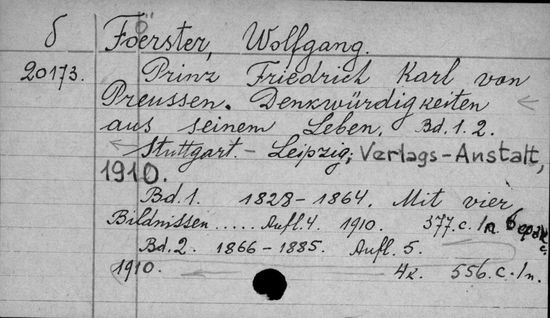 б Foerster, Wolfgang.
20173. Prinz Friedrich Karl von
Preussen. Denkwürdigkeiten
aus seinem Leben. Bd. 1. 2.
Stuttgart. - Leipzig; Verlags-Anstalt,
1910.
Bd. 1. 1828-1864. Mit vier
Bildnissen..... Aufl. 4. 1910. 377. с. 1 п.
Bd. 2. 1866-1885. Aufl. 5.
1910. 4к. 556. с. 1 п.